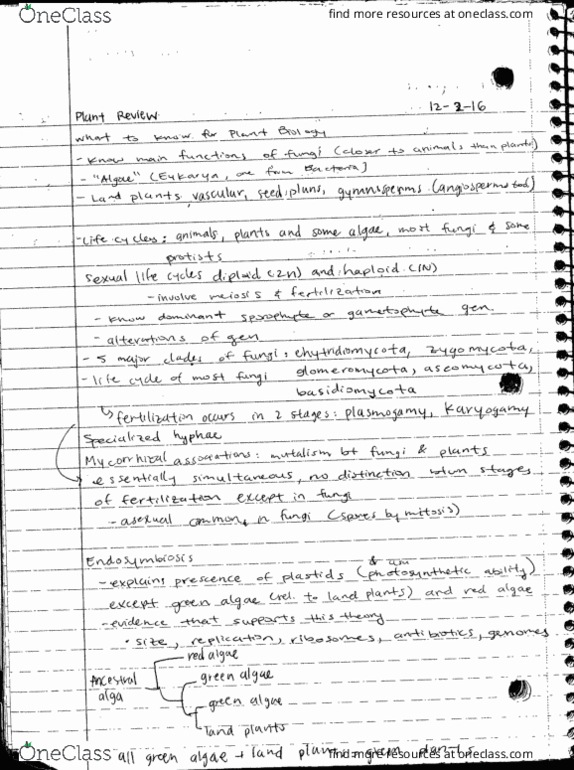 OneClass
find more resources at oneclass.com
12-2-16
Plant Review
What to know for Plant Biology
- Know main functions of fungi (closer to animals than plants)
- "Algae" (Eukarya, one from Bacteria]
- Land plants, vascular, seed plans, gymnosperms (angiosperms too)
- Life cycles: animals, plants and some algae, most fungi & some
protists
Sexual life cycles diploid (2n) and haploid C(N)
- involve meiosis & fertilization
- know dominant sporophyte or gametophyte gen.
- alterations of gen
- 5 major clades of fungi: chytridiomycota, zygomycota,
- life cycle of most fungi glomeromycota, ascomycota,
basidiomycota
↳ fertilization occurs in 2 stages: plasmogamy, karyogamy
Specialized hyphae
Mycorrhizal associations: mutalism bt fungi & plants
essentially simultaneous, no distinction btwn stages
of fertilization except in fungi
- asexual common in fungi (spores by mitosis)
Endosymbiosis
- explains prescence of plastids (photosynthetic ability)
except green algae (rel. to land plants) and red algae
- evidence that supports this theory
• size, replication, ribosomes, antibiotics, genomes
red algae
Ancestral alga
green algae
green algae
land plants
OneClass
all green algae + land
find more resources at oneclass.com